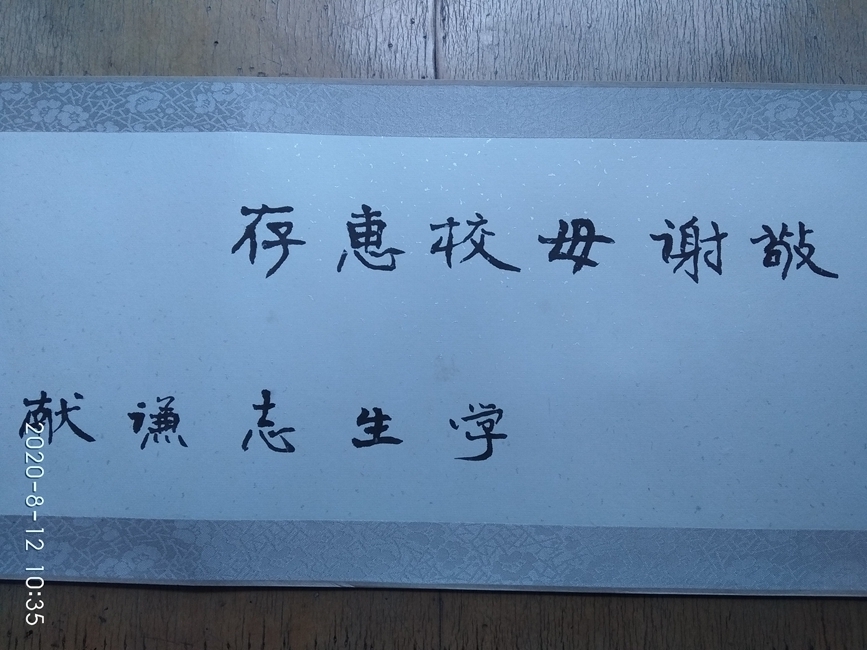 敬谢母校惠存
学生志谦献
2020-8-12 10:35